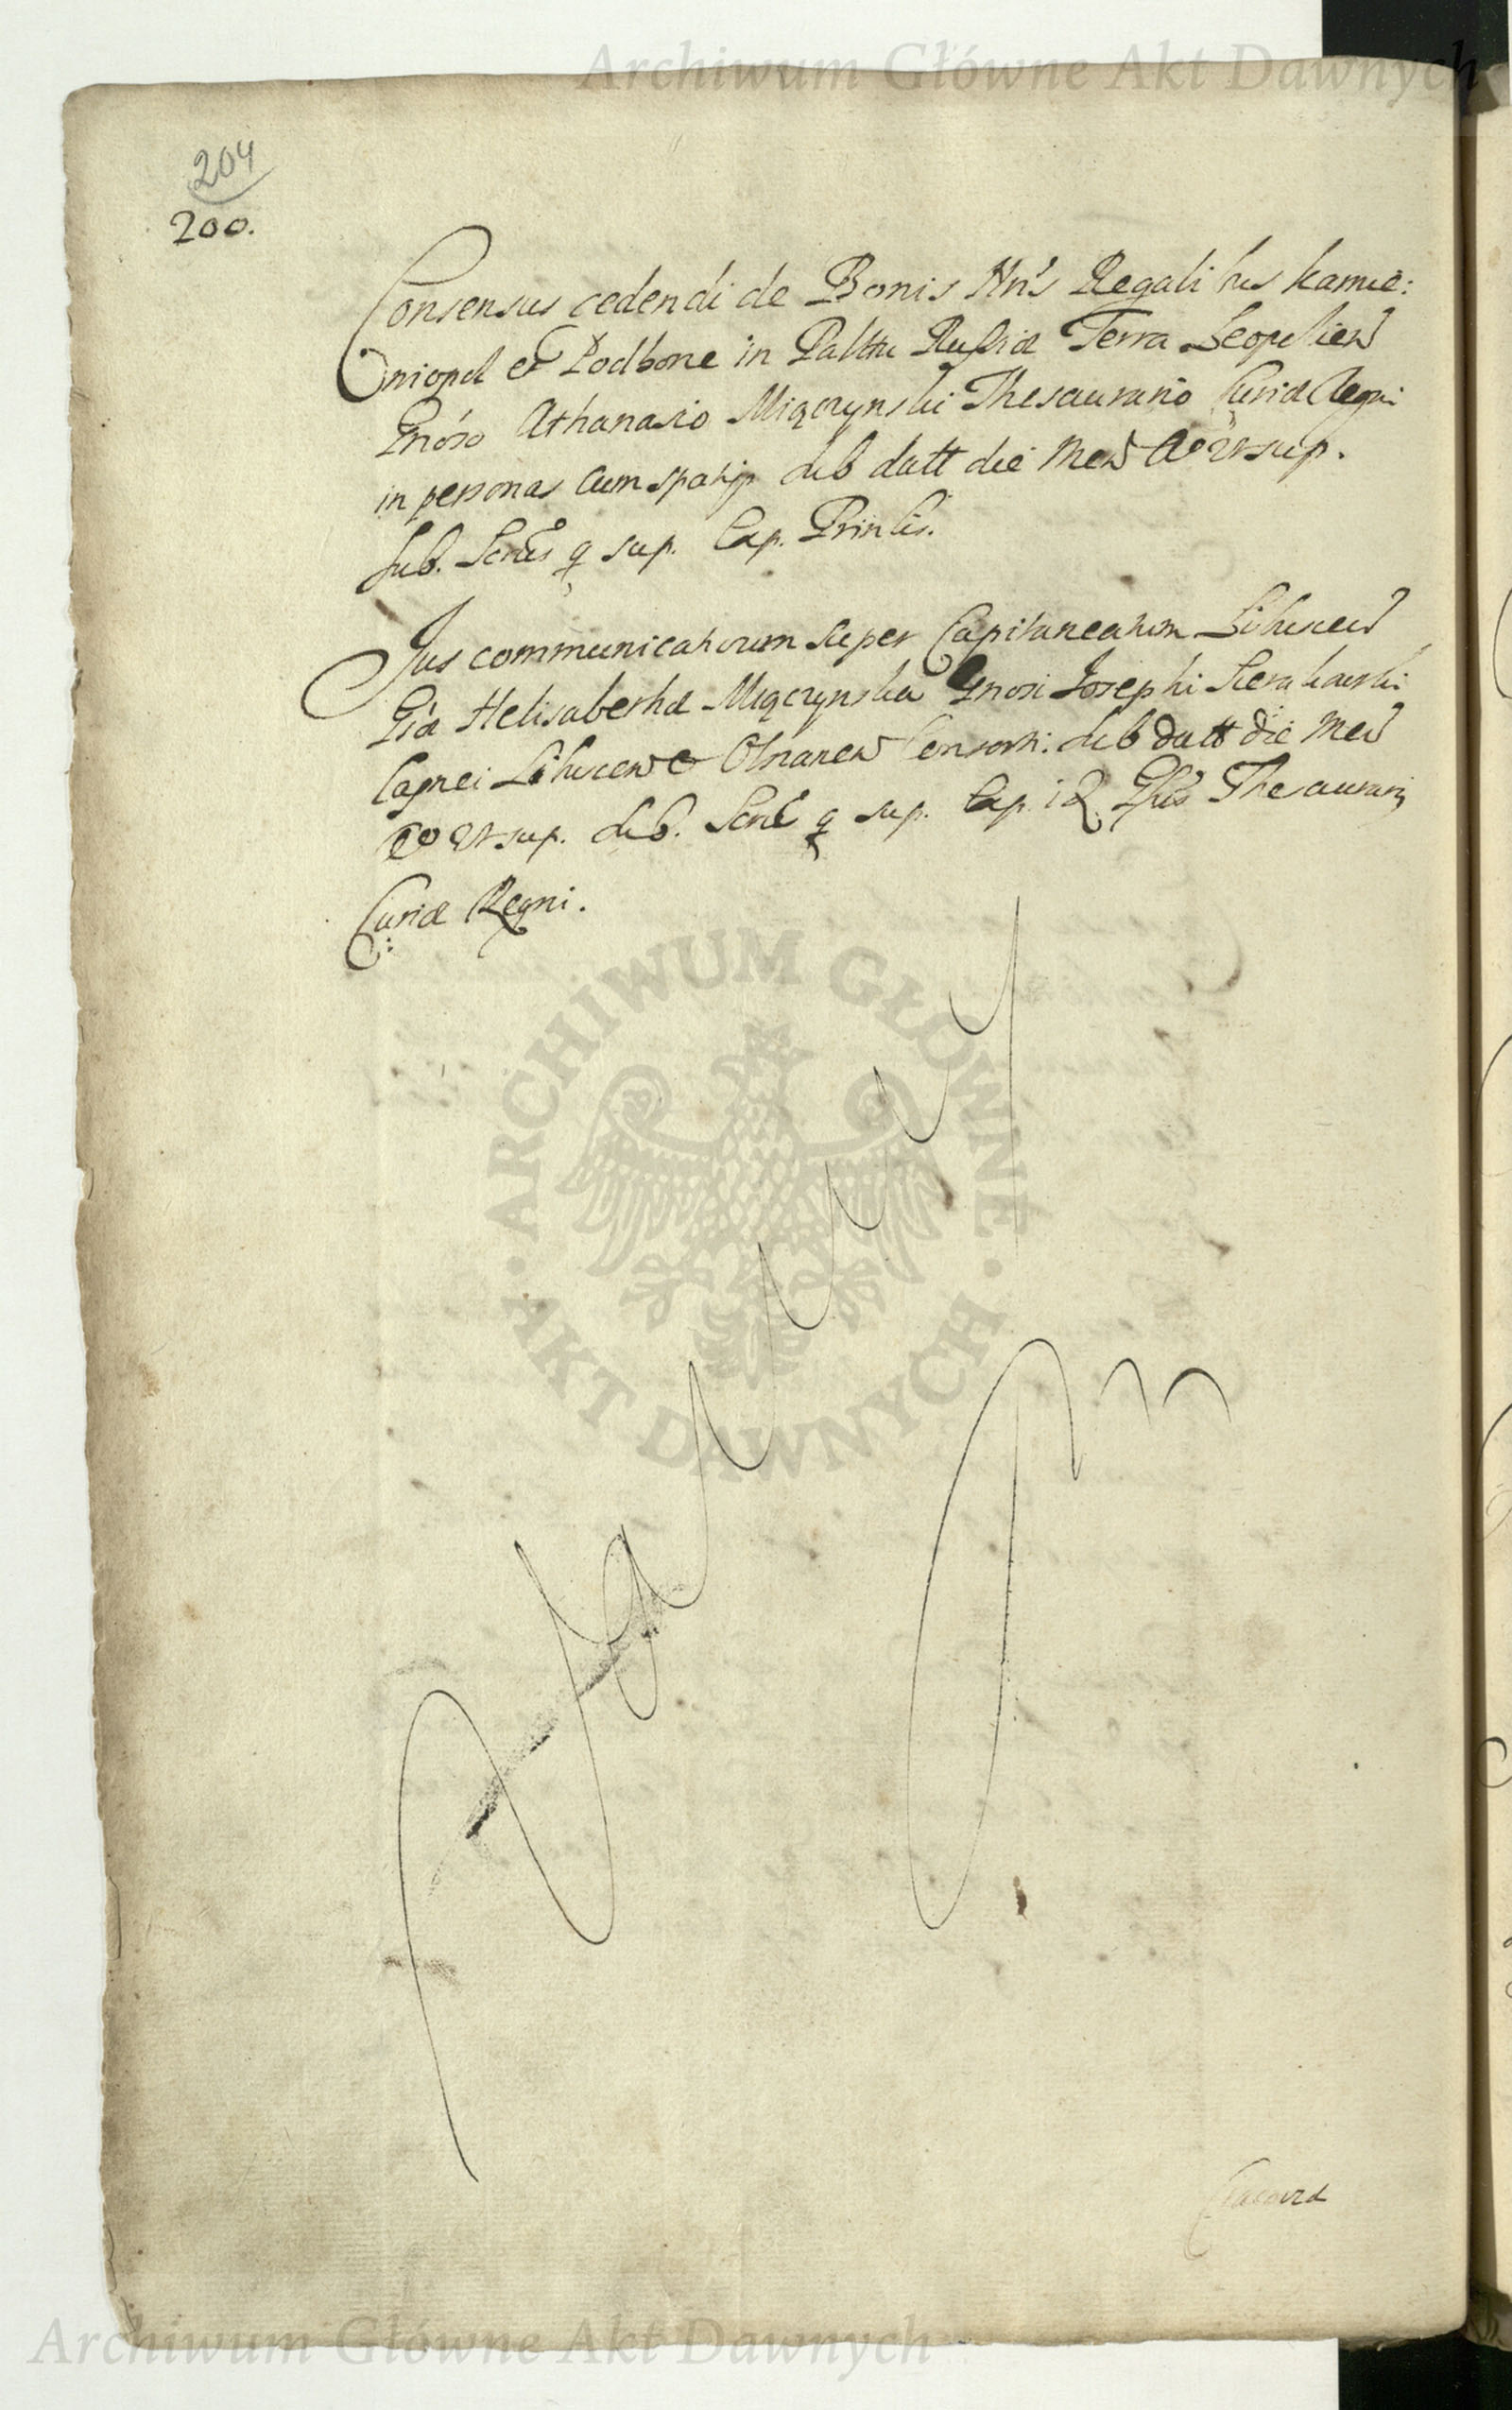 Archiwum Główne Akt Dawnych
204
200.
Consensus cedendi de Bonis Nris Regalibus kamie:
niopol et Podbone in Palttu Russiæ Terra Leopolien
Gnoso Athanasio Miączynski Thesaurario Curiæ Regni
in personas cum spatijs sub datt die Men Ao Ut sup.
sub. Scrius q sup. Cap. Prinlis.
Jus communicativum super Capitaneatum
Gsæ Helisabethæ Miączynska Gnosi Josephi Sierakowski
Capnei et Olsztanen Consorti: sub datt die Men
Ao Ut sup. sub. Scrius q sup. Cap. id. Thesaurarij
Curiæ Regni.
ARCHIWUM GŁÓWNE · AKT DAWNYCH ·
Archiwum Główne Akt Dawnych